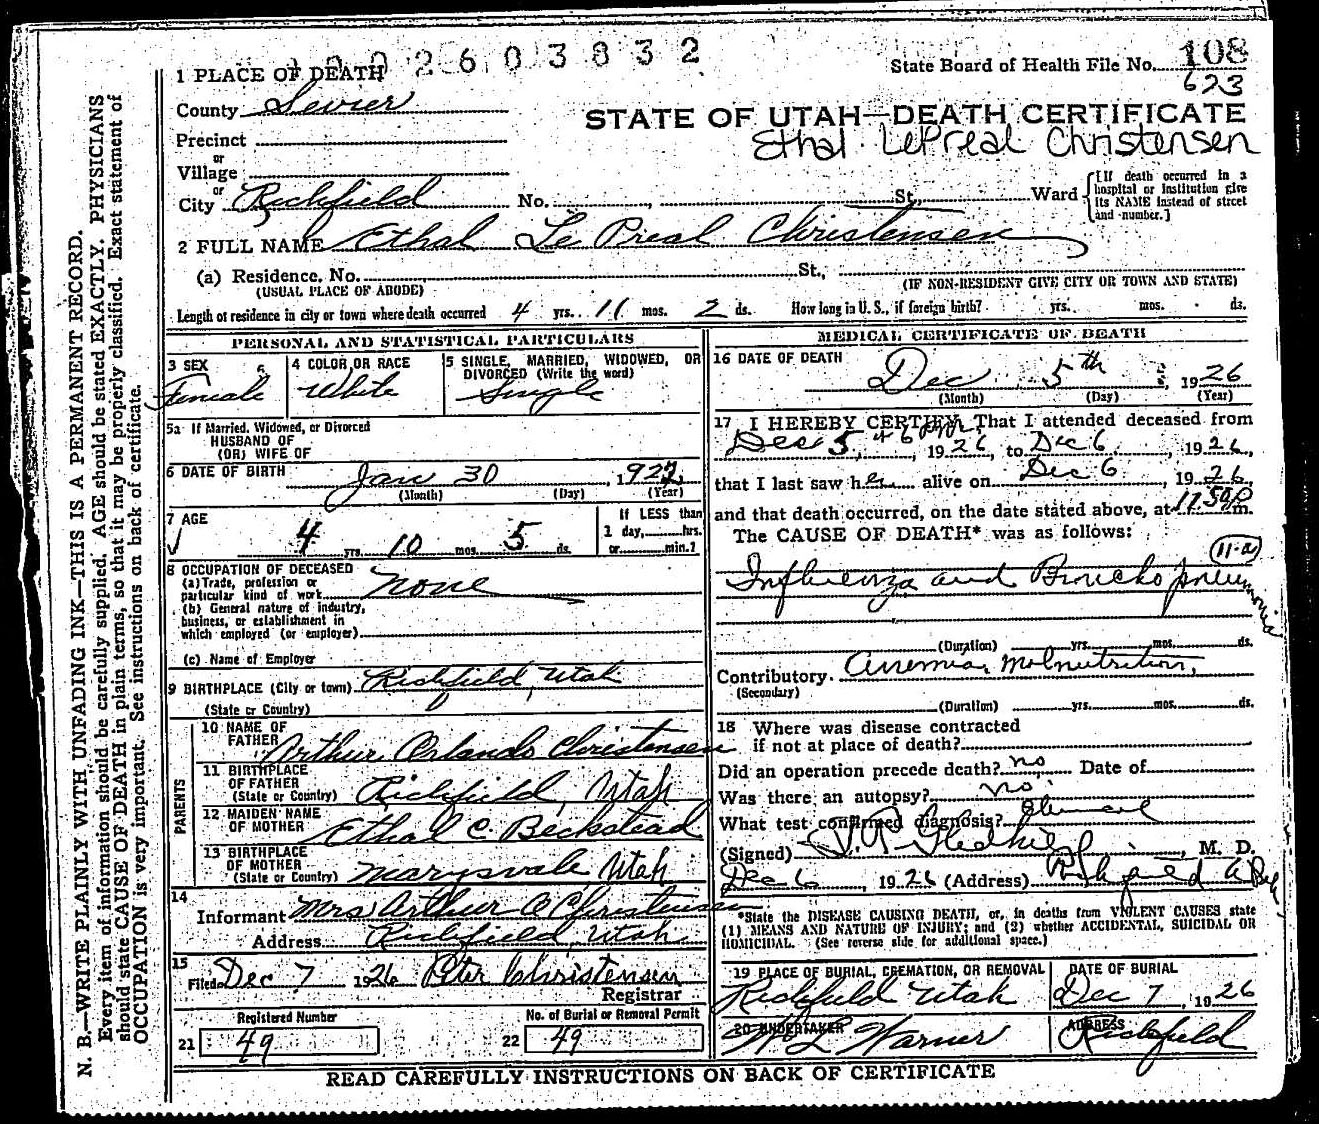 2603832
1 PLACE OF DEATH
State Board of Health File No. 108
623
County Sevier
STATE OF UTAH—DEATH CERTIFICATE
Ethal LePreal Christensen
Precinct
or
Village
or
City Richfield No. , St. Ward
[If death occurred in a hospital or institution give its NAME instead of street and number.]
2 FULL NAME Ethal Le Preal Christensen
(a) Residence. No. St.,
(USUAL PLACE OF ABODE) (IF NON-RESIDENT GIVE CITY OR TOWN AND STATE)
Length of residence in city or town where death occurred 4 yrs. 11 mos. 2 ds. How long in U. S., if foreign birth? yrs. mos. ds.
PERSONAL AND STATISTICAL PARTICULARS
3 SEX Female
4 COLOR OR RACE White
5 SINGLE, MARRIED, WIDOWED, OR DIVORCED (Write the word) Single
5a If Married, Widowed, or Divorced
HUSBAND OF
(OR) WIFE OF
6 DATE OF BIRTH Jan 30, 1922
(Month) (Day) (Year)
7 AGE 4 yrs. 10 mos. 5 ds.
If LESS than
1 day, hrs.
or min.?
8 OCCUPATION OF DECEASED
(a) Trade, profession or
particular kind of work none
(b) General nature of industry,
business, or establishment in
which employed (or employer)
(c) Name of Employer
9 BIRTHPLACE (City or town) Richfield, Utah
(State or Country)
PARENTS
10 NAME OF FATHER Arthur Orlando Christensen
11 BIRTHPLACE OF FATHER (State or Country) Richfield, Utah
12 MAIDEN NAME OF MOTHER Ethal C. Beckstead
13 BIRTHPLACE OF MOTHER (State or Country) Marysvale Utah
14
Informant Mrs Arthur O Christensen
Address Richfield, Utah
15
Filed Dec 7 1926 Peter Christensen
Registrar
Registered Number
21 49
No. of Burial or Removal Permit
22 49
MEDICAL CERTIFICATE OF DEATH
16 DATE OF DEATH
Dec 5th, 1926
(Month) (Day) (Year)
17 I HEREBY CERTIFY, That I attended deceased from
Dec 5, 1926, to Dec 6, 1926,
that I last saw her alive on Dec 6, 1926,
and that death occurred, on the date stated above, at 11.50 P m.
The CAUSE OF DEATH* was as follows:
11-a
Influenza and Broncho pneumonia
(Duration) yrs. mos. ds.
Contributory. Anemia, Malnutrition,
(Secondary)
(Duration) yrs. mos. ds.
18 Where was disease contracted
if not at place of death?
Did an operation precede death? no Date of
Was there an autopsy? no
What test confirmed diagnosis?
(Signed) , M. D.
Dec 6, 1926 (Address)
*State the DISEASE CAUSING DEATH, or, in deaths from VIOLENT CAUSES state
(1) MEANS AND NATURE OF INJURY; and (2) whether ACCIDENTAL, SUICIDAL OR
HOMICIDAL. (See reverse side for additional space.)
19 PLACE OF BURIAL, CREMATION, OR REMOVAL
Richfield Utah
DATE OF BURIAL
Dec 7, 1926
20 UNDERTAKER
W L Warner
ADDRESS
Richfield
READ CAREFULLY INSTRUCTIONS ON BACK OF CERTIFICATE
N. B.—WRITE PLAINLY WITH UNFADING INK—THIS IS A PERMANENT RECORD.
Every item of information should be carefully supplied. AGE should be stated EXACTLY. PHYSICIANS
should state CAUSE OF DEATH in plain terms, so that it may be properly classified. Exact statement of
OCCUPATION is very important. See instructions on back of certificate.